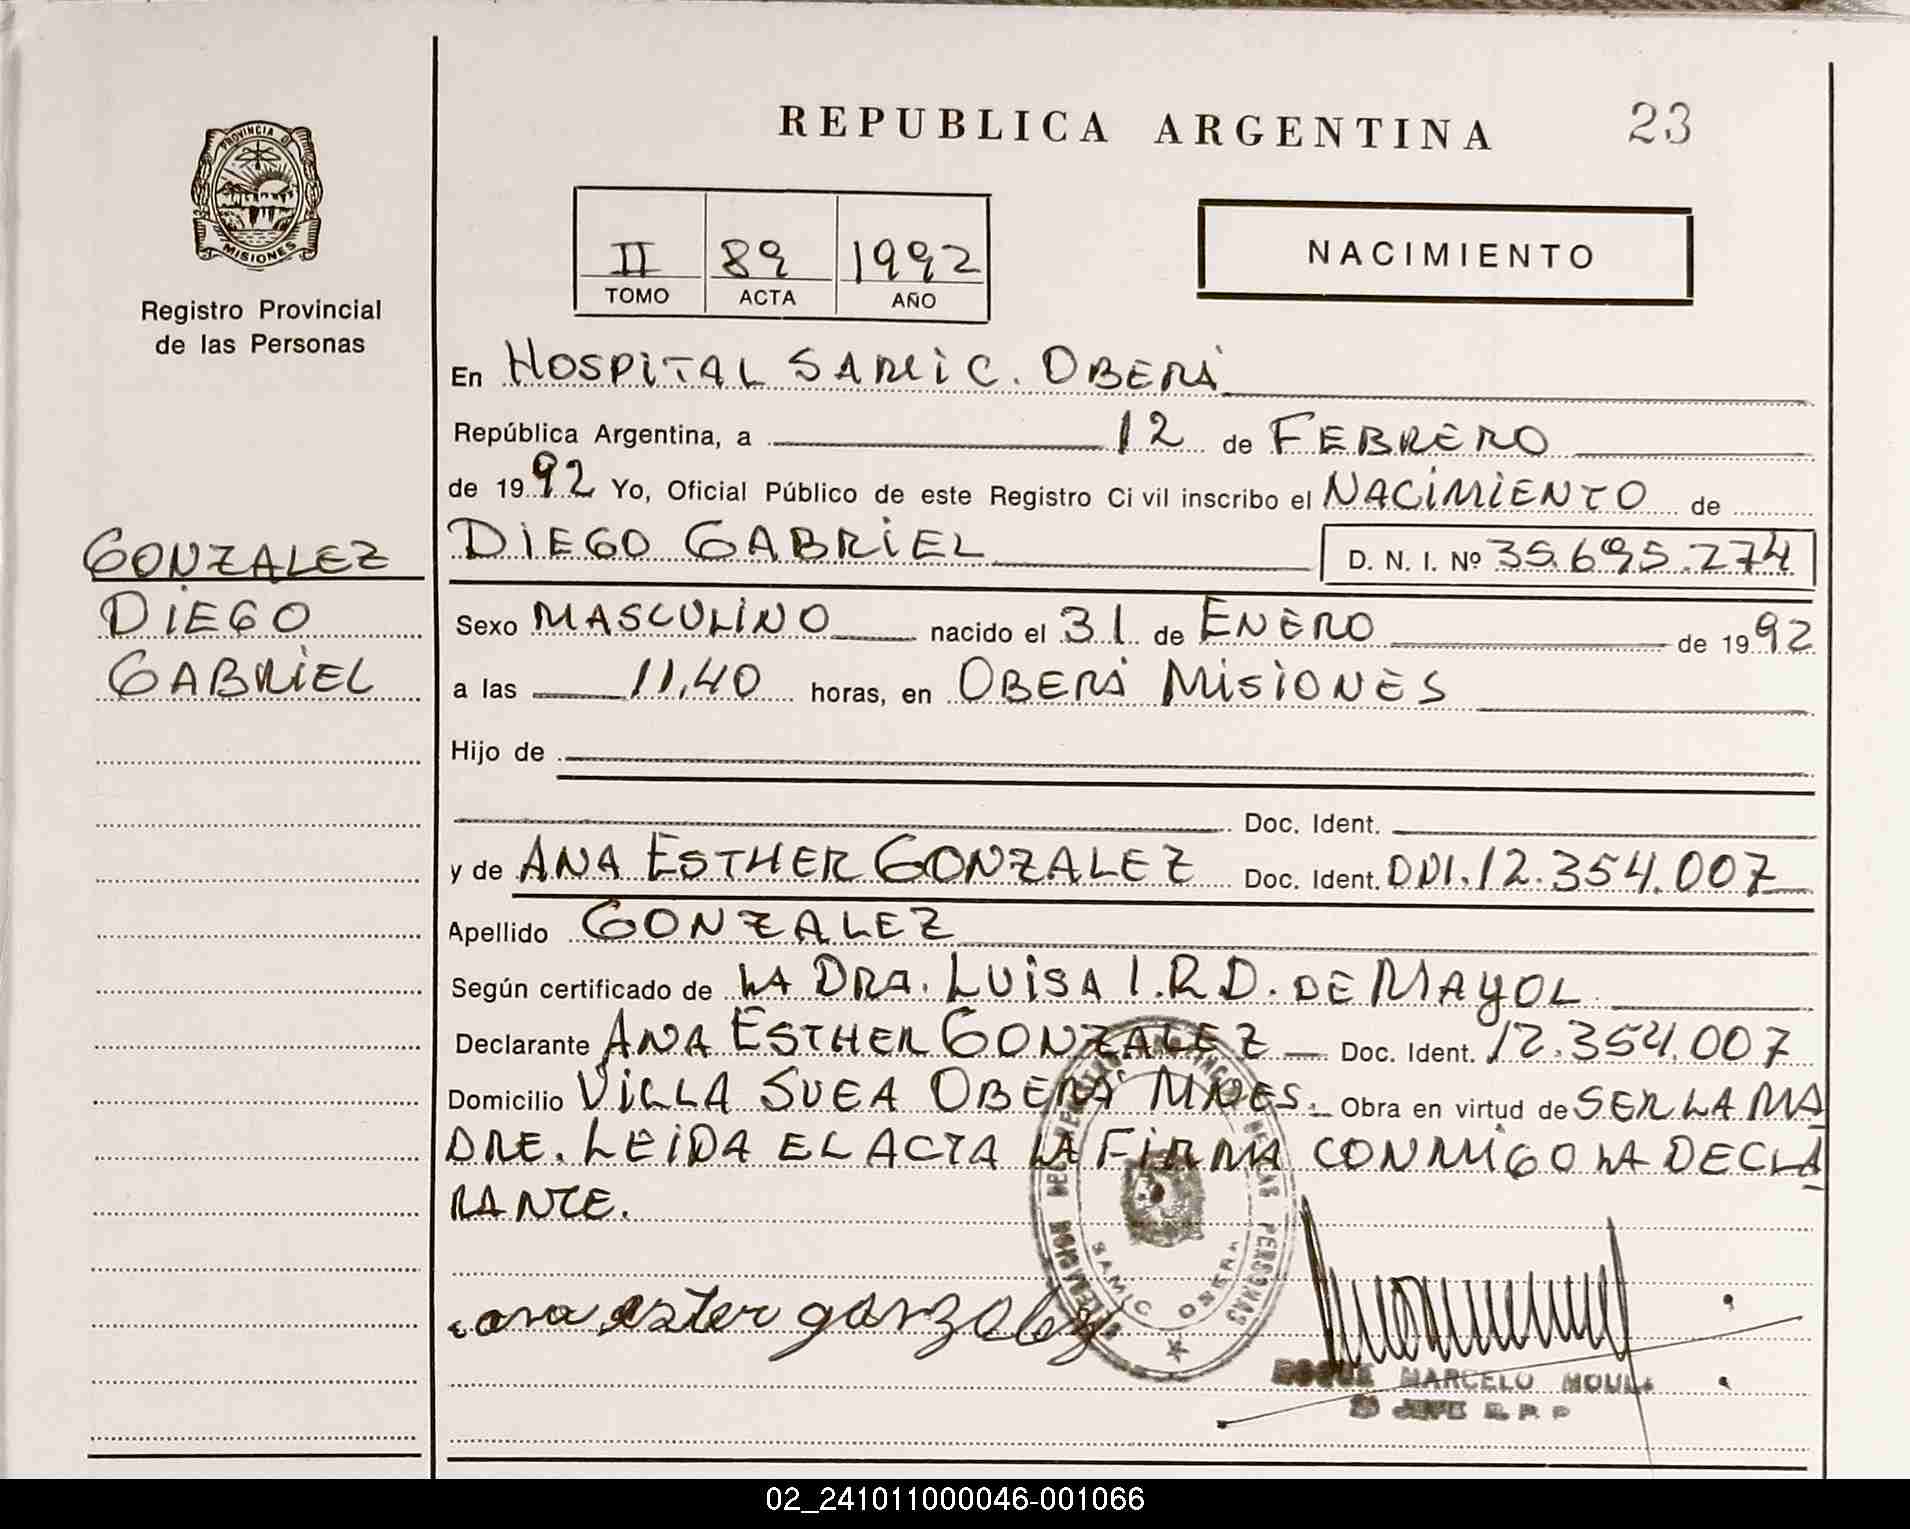 REPUBLICA ARGENTINA
23
PROVINCIA D
MISIONES
Registro Provincial
de las Personas
II 89 1992
TOMO ACTA AÑO
NACIMIENTO
En HOSPITAL SAMIC. OBERÁ
República Argentina, a 12 de FEBRERO
de 1992 Yo, Oficial Público de este Registro Civil inscribo el NACIMIENTO de
GONZALEZ
DIEGO
GABRIEL
DIEGO GABRIEL D. N. I. Nº 35.695.274
Sexo MASCULINO nacido el 31 de ENERO de 1992
a las 11,40 horas, en OBERÁ MISIONES
Hijo de
Doc. Ident.
y de ANA ESTHER GONZALEZ Doc. Ident. DNI.12.354.007
Apellido GONZALEZ
Según certificado de LA DRA. LUISA I.R.D. DE MAYOL
Declarante ANA ESTHER GONZALEZ Doc. Ident. 12.354.007
Domicilio VILLA SUEA OBERÁ MNES. Obra en virtud de SER LA MA
DRE. LEIDA EL ACTA LA FIRMA CONMIGO LA DECLA
RANTE.
ana ester gonzalez
PERSONAS
SAMIC OBERA
MARCELO
JEFE R.P.P
02_241011000046-001066